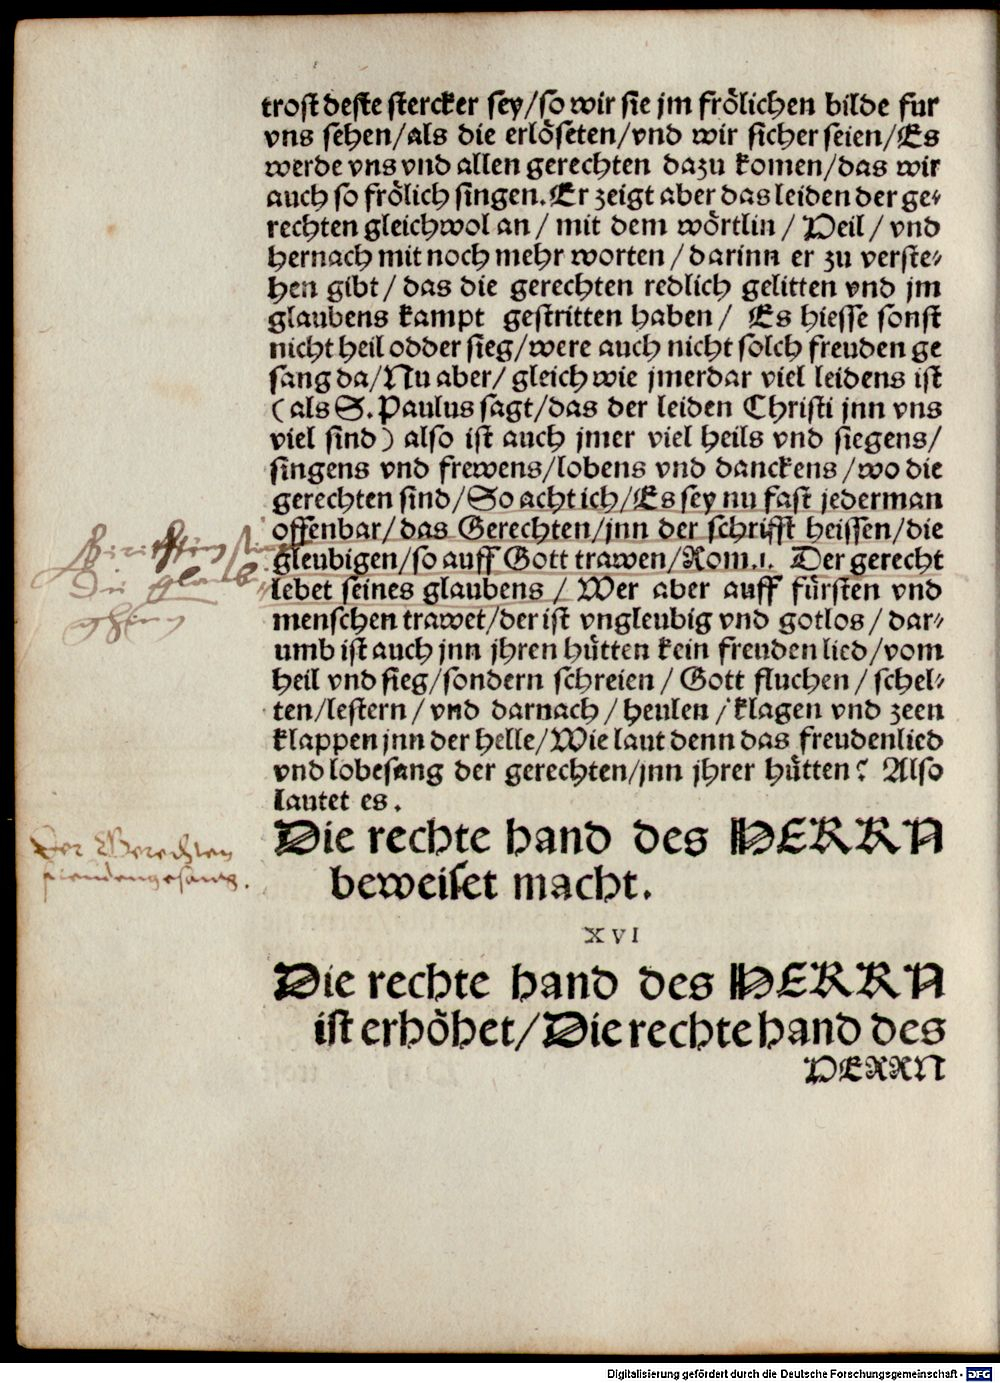 trost deste stercker sey/so wir sie jm frölichen bilde fur
vns sehen/als die erlöseten/vnd wir sicher seien/Es
werde vns vnd allen gerechten dazu komen/das wir
auch so frölich singen. Er zeigt aber das leiden der ge-
rechten gleichwol an / mit dem wörtlin / Heil / vnd
hernach mit noch mehr worten / darinn er zu verste-
hen gibt / das die gerechten redlich gelitten vnd jm
glaubens kampt gestritten haben / Es hiesse sonst
nicht heil odder sieg/were auch nicht solch freuden ge
sang da/Nu aber/ gleich wie jmerdar viel leidens ist
(als S. Paulus sagt/das der leiden Christi jnn vns
viel sind) also ist auch jmer viel heils vnd siegens/
singens vnd frewens/lobens vnd danckens/wo die
gerechten sind/So acht ich/Es sey nu fast jederman
offenbar/das Gerechten/jnn der schrifft heissen/die
gleubigen/so auff Gott trawen/Rom.1. Der gerecht
lebet seines glaubens / Wer aber auff fürsten vnd
menschen trawet/der ist vngleubig vnd gotlos/ dar-
umb ist auch jnn jhren hütten kein freuden lied/vom
heil vnd sieg/sondern schreien / Gott fluchen / schel-
ten/lestern / vnd darnach / heulen / klagen vnd zeen
klappen jnn der helle/Wie laut denn das freudenlied
vnd lobesang der gerechten/jnn jhrer hütten? Also
lautet es.
Der Gerechten
freudengesang.
Die rechte hand des HERRN
beweiset macht.
XVI
Die rechte hand des HERRN
ist erhöhet/Die rechte hand des
HERRN
Digitalisierung gefördert durch die Deutsche Forschungsgemeinschaft - DFG